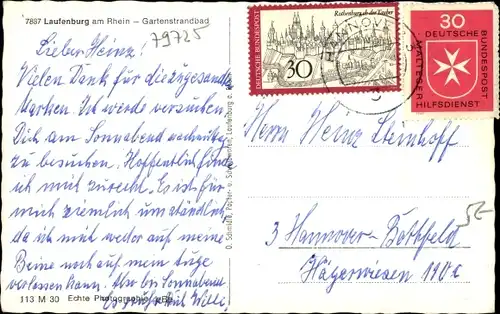 7887 Laufenburg am Rhein – Gartenstrandbad
79725
Lieber Heinz!
Vielen Dank für die zugesandte
Karten. Ich werde versuchen
Dich am Sonnabend nachmittag
zu besuchen. Hoffentlich finde
ich mich zurecht. Es ist für
mich ziemlich umständlich,
da ich mich weder auf meine
Beine noch auf mein Auge
verlassen kann. Also bis Sonnabend
Es grüßt Dich Willi
113 M 30 Echte Photographie
O. Schmidt, Papier- u. Schreibwaren, Laufenburg
DEUTSCHE BUNDESPOST
Rothenburg ob der Tauber
30
HANNOVER
30
DEUTSCHE BUNDESPOST
MALTESER
HILFSDIENST
Herrn Heinz Steinhoff
3 Hannover-Bothfeld
Hägerwiesen 110c
5E